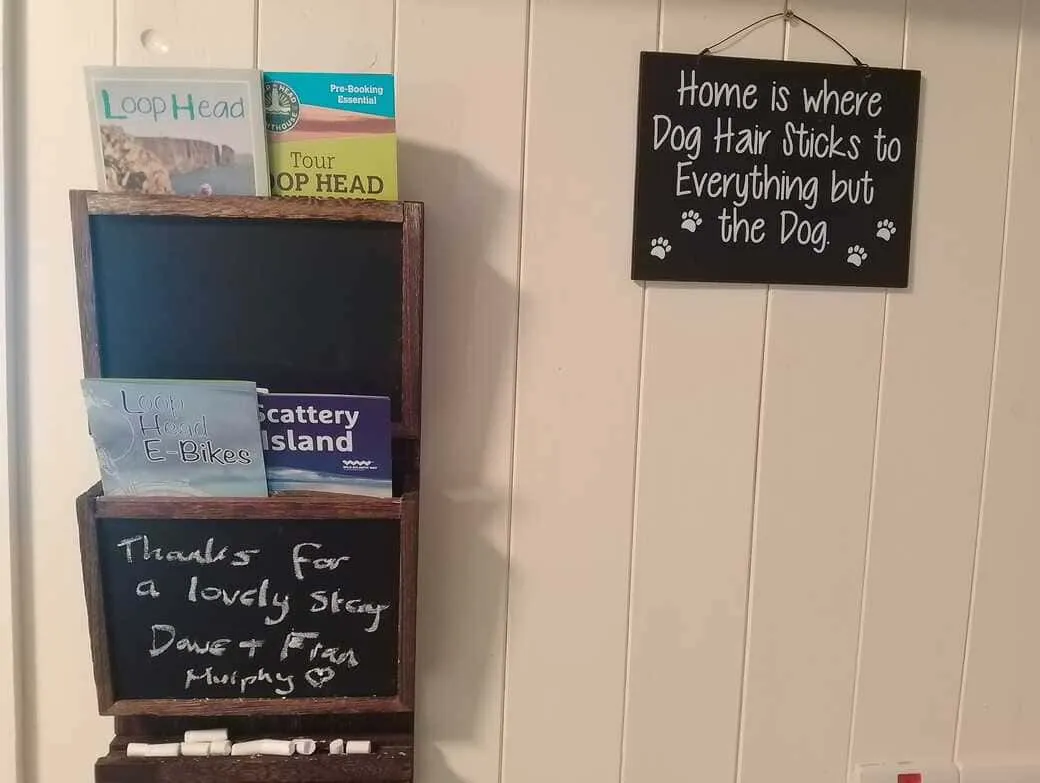 Loop Head
Pre-Booking
Essential
Tour
OOP HEAD
Home is where
Dog Hair Sticks to
Everything but
the Dog.
Loop
Head
E-Bikes
Scattery
Island
WILD ATLANTIC WAY
Thanks for
a lovely stay
Dave + Fran
Murphy ♡